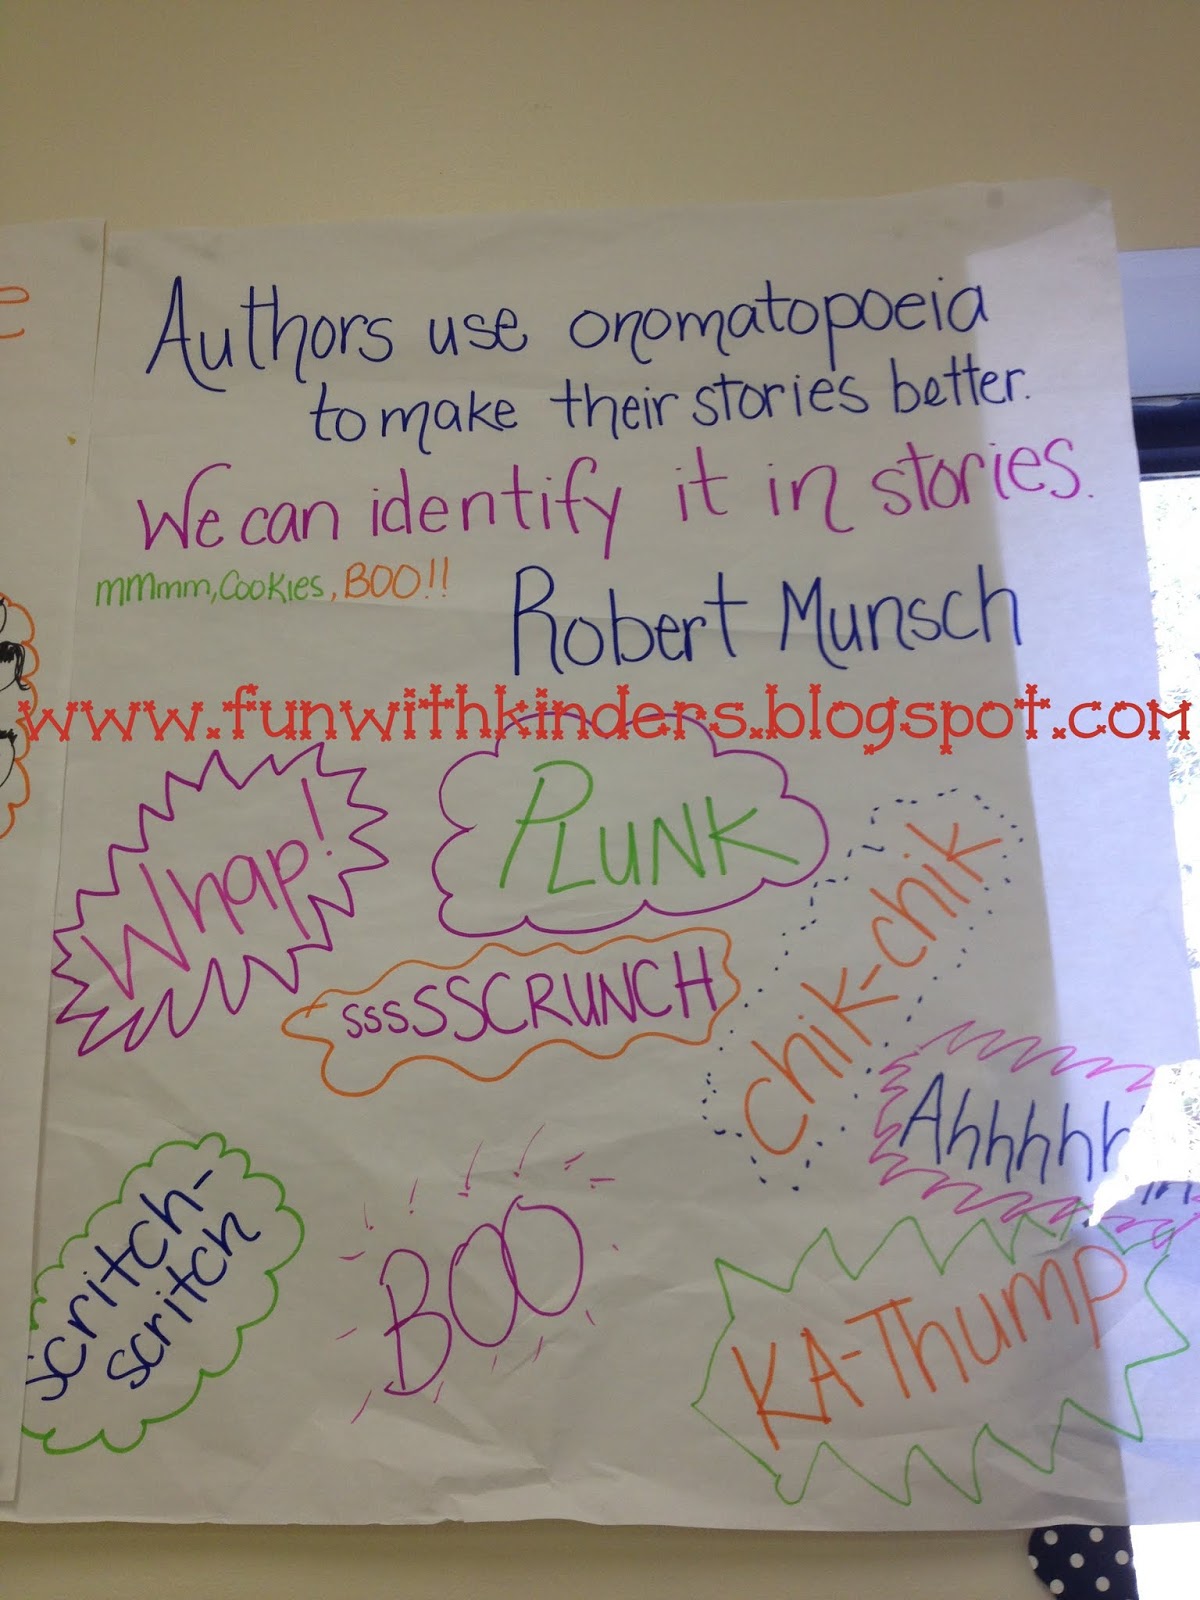 Authors use onomatopoeia
to make their stories better.
We can identify it in stories.
mMmm, Cookies, BOO!!
Robert Munsch
www.funwithkinders.blogspot.com
Whap!
PLUNK
chik-chik
sssSSCRUNCH
Ahhhhh
Scritch-
scritch
BOO
KA-Thump